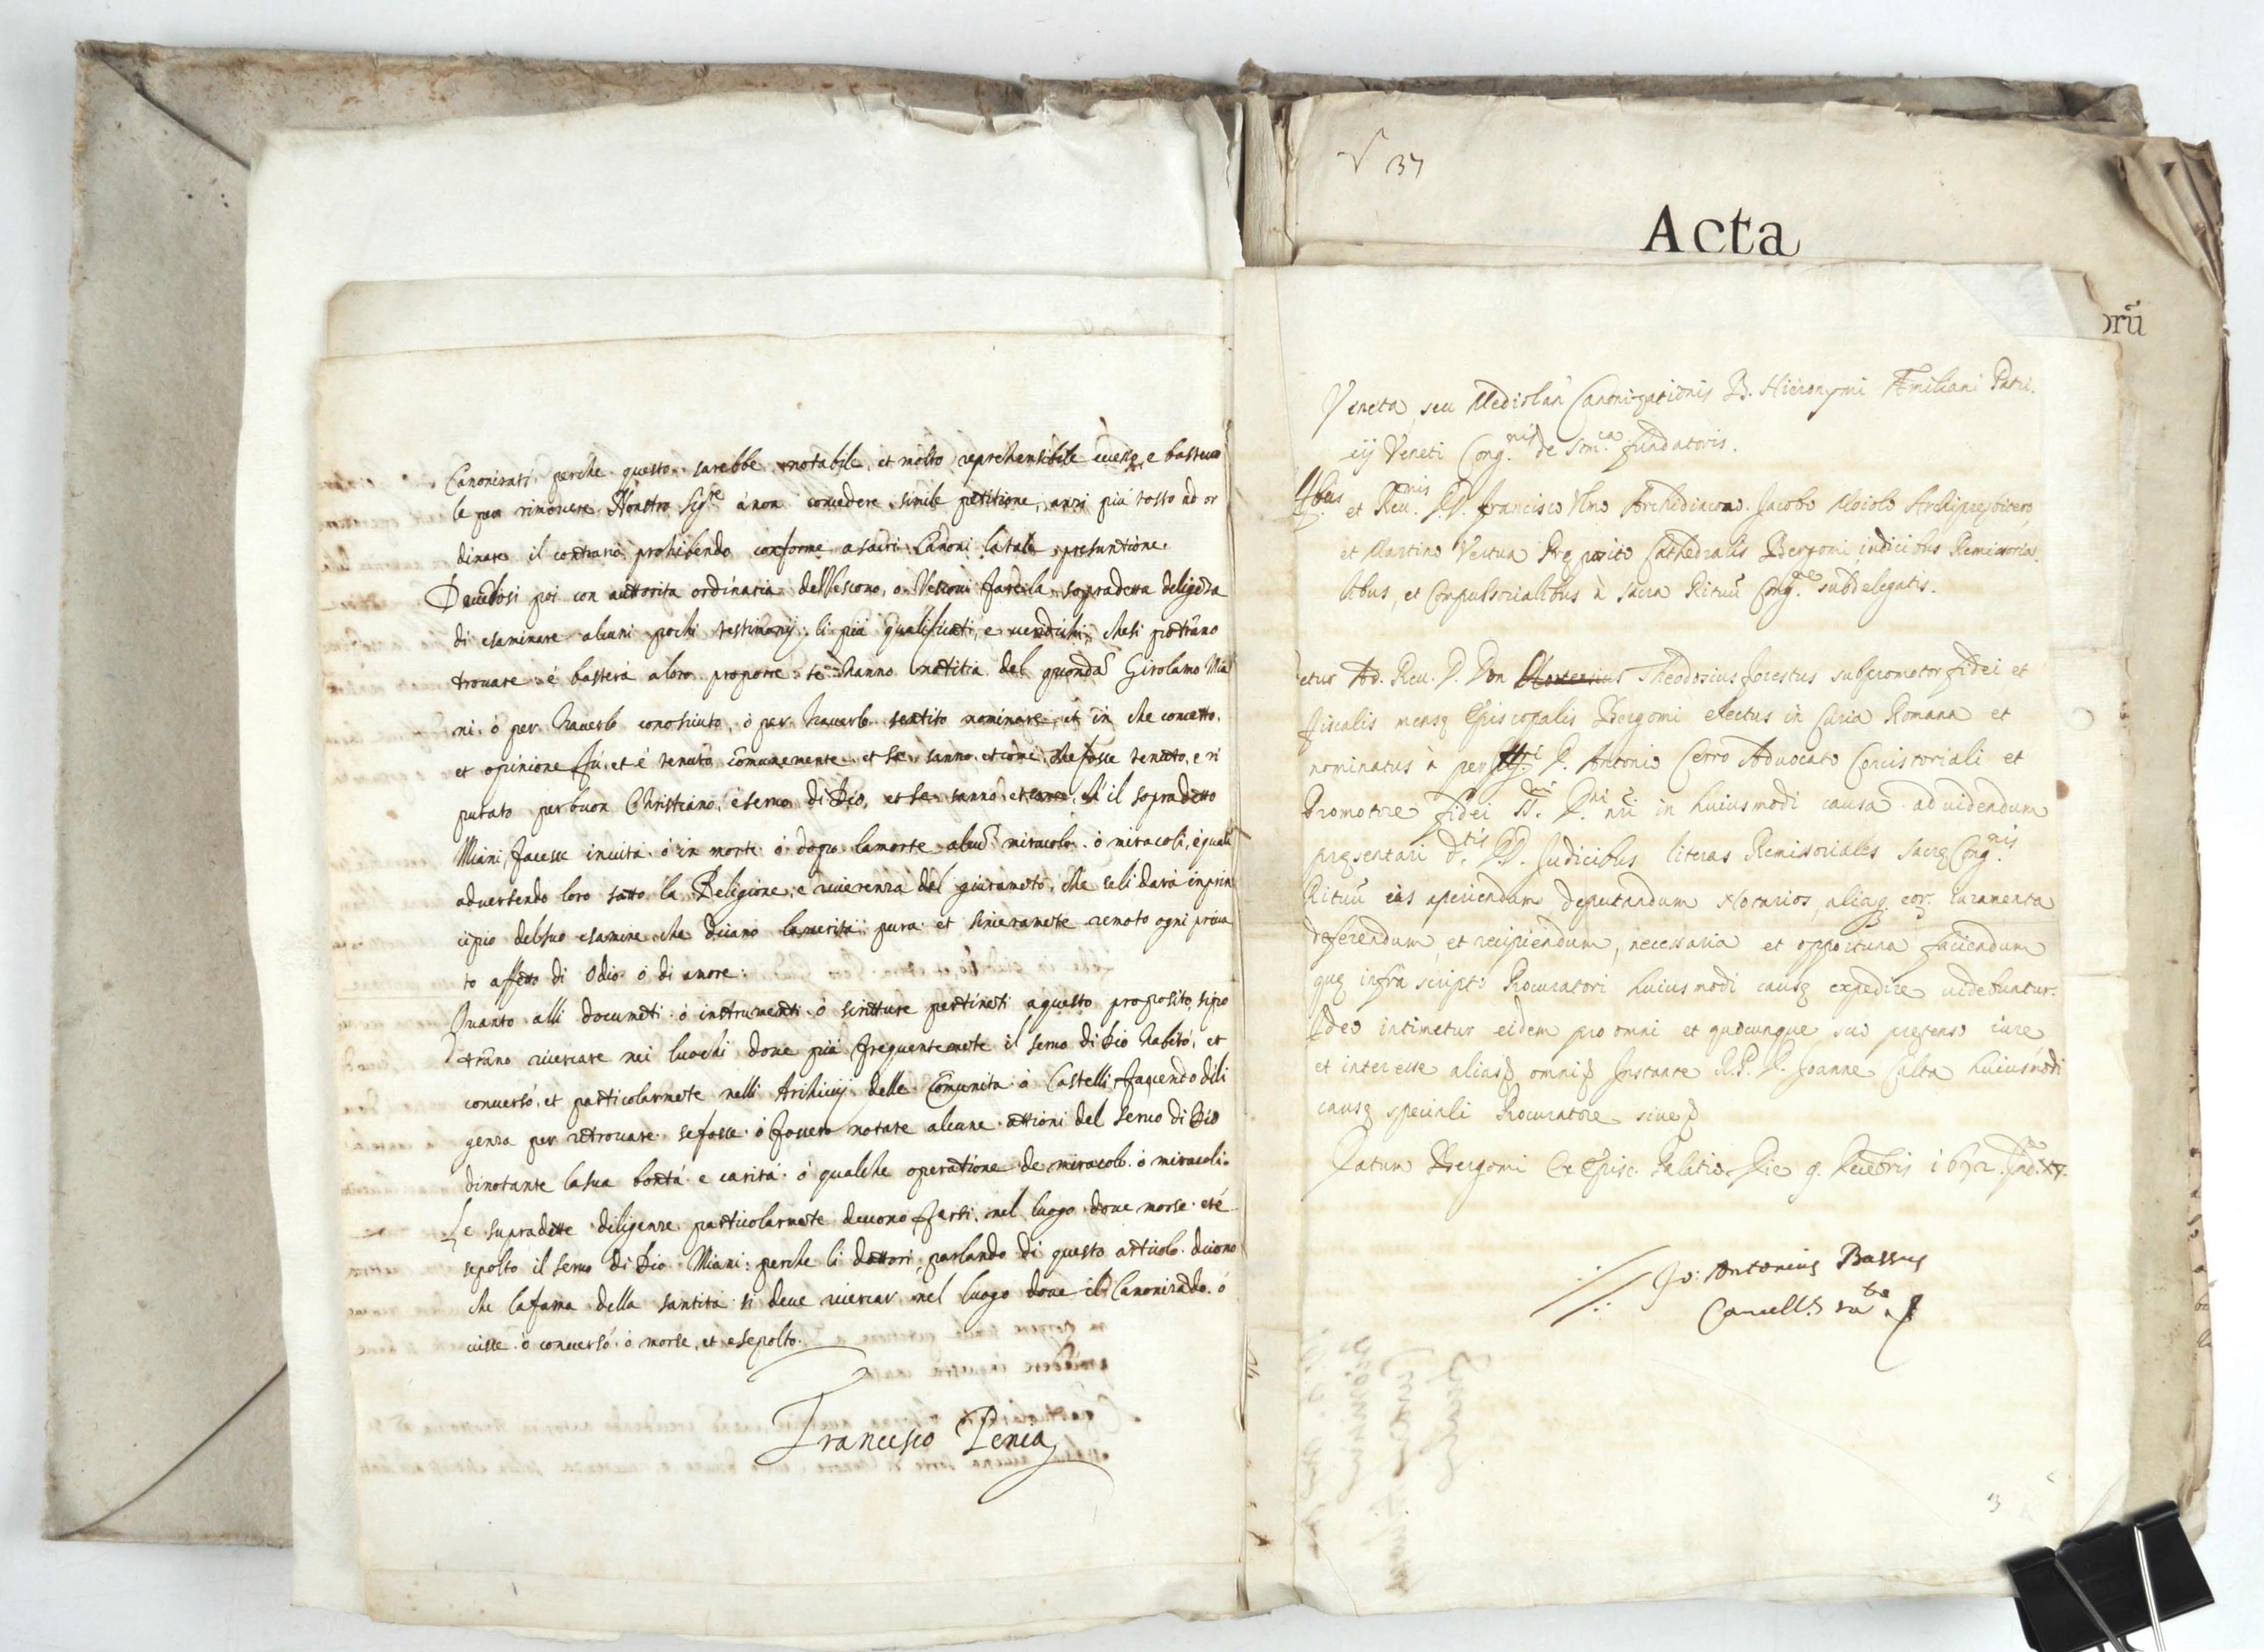 Canonizati, perche questo sarebbe notabile, et molto reprehensibile e basteuo
le per rimouere Nostro Sig.re à non concedere simile petitione, anzi più tosto ad or
dinare il contrario prohibendo conforme a sacri Canoni la tale presuntione.
poi con auttorita ordinaria del Vescouo, o Vescoui far sopradetta
di esaminare alcuni pochi testimonij li più qualificati, e che si potrano
trouare e basterà a loro proporre se hanno notitia del quonda Girolamo Mia
ni, ò per hauerlo conosciuto, ò per hauerlo sentito nominare, et in che concetto,
et opinione fù, et è tenuto comunemente et se sanno, et come, che fosse tenuto, e ri
putato per buon Christiano, e seruo di Dio, et se sanno, et come, ch' il sopradetto
Miani facesse in uita ò in morte ò dopo la morte alcu miracolo ò miracoli, e quali
aduertendo loro sotto la Religione, e riuerenza del giurameto, che seli darà in prin
cipio del suo esamine che dicano la uerità pura et sincieramete remoto ogni priua
to affetto di odio ò di amore.
Quanto alli documeti ò instrumenti ò scritture pertineti a questo proposito, si po
trano ricercare nei luochi doue più frequentemete il seruo di Dio habitò, et
conuersò, et particolarmete nelli Archiuij delle Comunita ò Castelli facendo dili
genza per retrouare se fosse ò fossero notate alcune attioni del seruo di Dio
dinotante la sua bontà e carità ò qualche operatione de miracolo ò miracoli.
Le supradette diligenze particolarmete deuono farsi nel luogo doue morse et è
sepolto il seruo di Dio Miani: perche li dottori, parlando di questo articolo dicono
che la fama della santità si deue ricercar nel luogo doue il Canonizado ò
uisse ò conuersò ò morse, et e sepolto.
Francisco Penia
N 37
Acta
orũ
Veneta, seu Mediolan Canonizationis B. Hieronymi Æmiliani Patri-
cij Veneti Cong.nis de Som.ca fundatoris.
et Reu.mis DD. Francisco Archidiacono Jacobo Archipresbitero,
et Martino Vertua Preposito Cathedralis Bergomi, iudicibus Remissoria
libus, et Compulsorialibus à Sacra Rituũ Cong.ne subdelegatis.
etur Ad. Reu. D. Don Theodosius Forestus subpromotor fidei et
fiscalis mensę Episcopalis Bergomi electus in Curia Romana et
nominatus à D. Antonio Cerro Aduocato Consistoriali et
Promotore fidei S. D. nri in huiusmodi causa ad uidendum
pręsentari d.tis DD. Judicibus literas Remissoriales Sacrę Cong.nis
Rituũ eas aperiendum deputandum Notarios, aliaq. eor. iuramenta
deferendum, et recipiendum, necessaria et opportuna faciendum
quę infra script. Procuratori huiusmodi causę expedire uidebuntur.
Ideo intimetur eidem pro omni et quocunque suo pretenso iure
et interesse alias omni Instante R.P. D. Joanne Calta huiusmodi
causę speciali Procuratore siue
Datum Bergomi Ex Episc. Palatio Die 9.
Jo: Antonius Bassus
Cancell.s
3